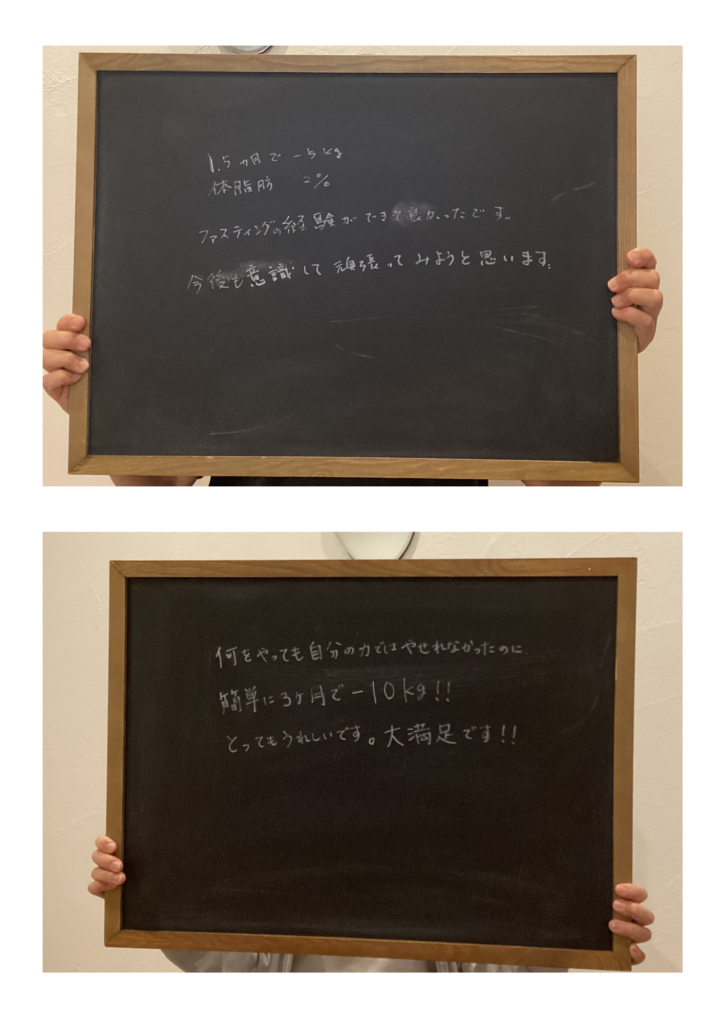 1.5ヵ月で -5kg
体脂肪 -2%
ファスティングの経験ができて良かったです。
今後も意識して頑張ってみようと思います。
何をやっても自分の力ではやせれなかったのに
簡単に3ヶ月で-10kg!!
とってもうれしいです。大満足です!!